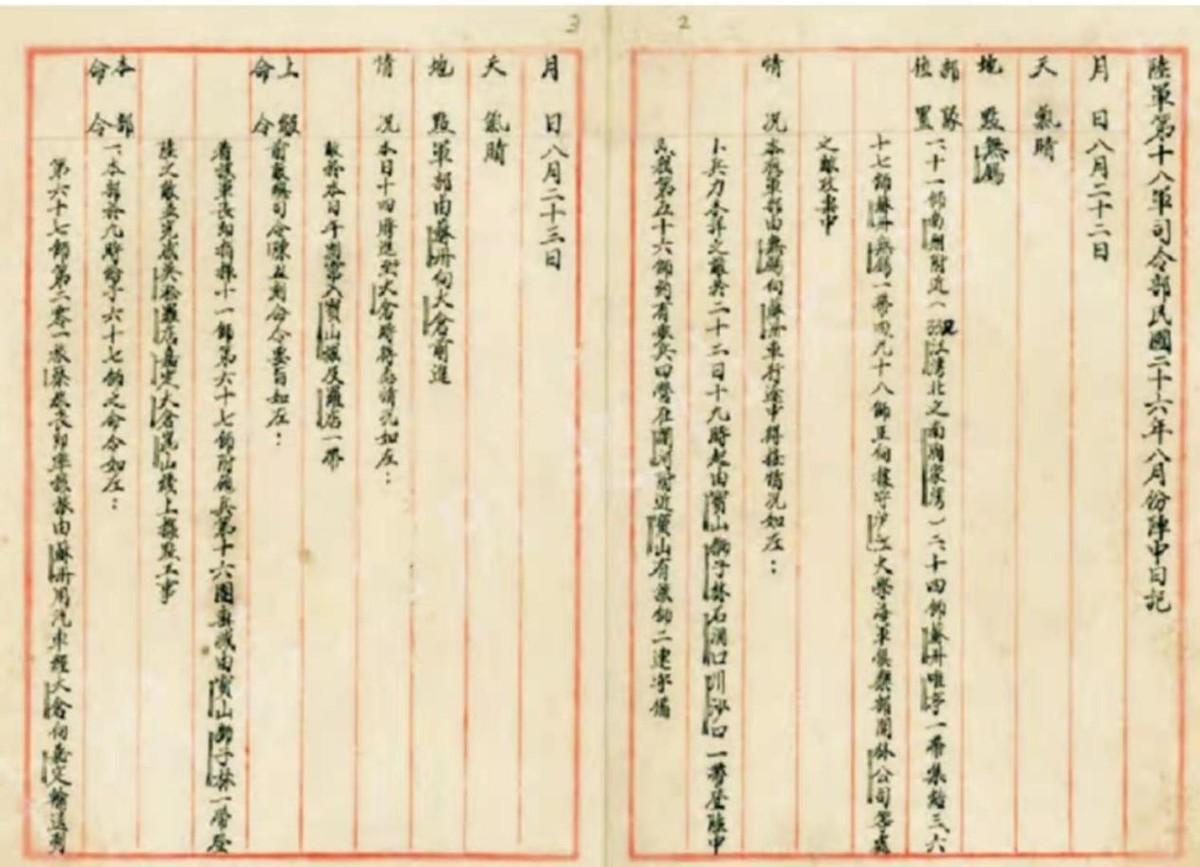 2
陸軍第十八軍司令部民國二十六年八月份陣中日記
月 日 八月二十二日
天 氣 晴
地 點 無錫
部隊位置 一、十一師南翔附近(江灣北之南家灣)二、十四師蘇州唯亭一帶集結三、六
十七師蘇州無錫一帶四、九十八師主向據守滬江大學海軍俱樂部開林公司等處
之敵攻擊中
情 況 本晚軍部由無錫向蘇州車行途中得接情況如左：
兵力未詳之敵於二十三日十九時起由寶山獅子林石洞口川沙口一帶登陸中
我第五十六師約有步兵四營在瀏河附近寶山有該師二連守備
3
月 日 八月二十三日
天 氣 晴
地 點 軍部由蘇州向太倉前進
情 況 本日十四時進至太倉時得悉情況如左：
敵於本日午刻竄入寶山城及羅店一帶
上級命令 前敵總司令陳五刻命令要旨如左：
着該軍長即指揮十一師第六十七師附砲兵第十六團殲滅由寶山獅子林一帶登
陸之敵並完成吳松羅店嘉定太倉崑山線上據點工事
本部命令 一、本部於九時給予六十七師之命令如左：
第六十七師第二零一旅蔡旅長即率該旅由蘇州用汽車經太倉向嘉定輸送到